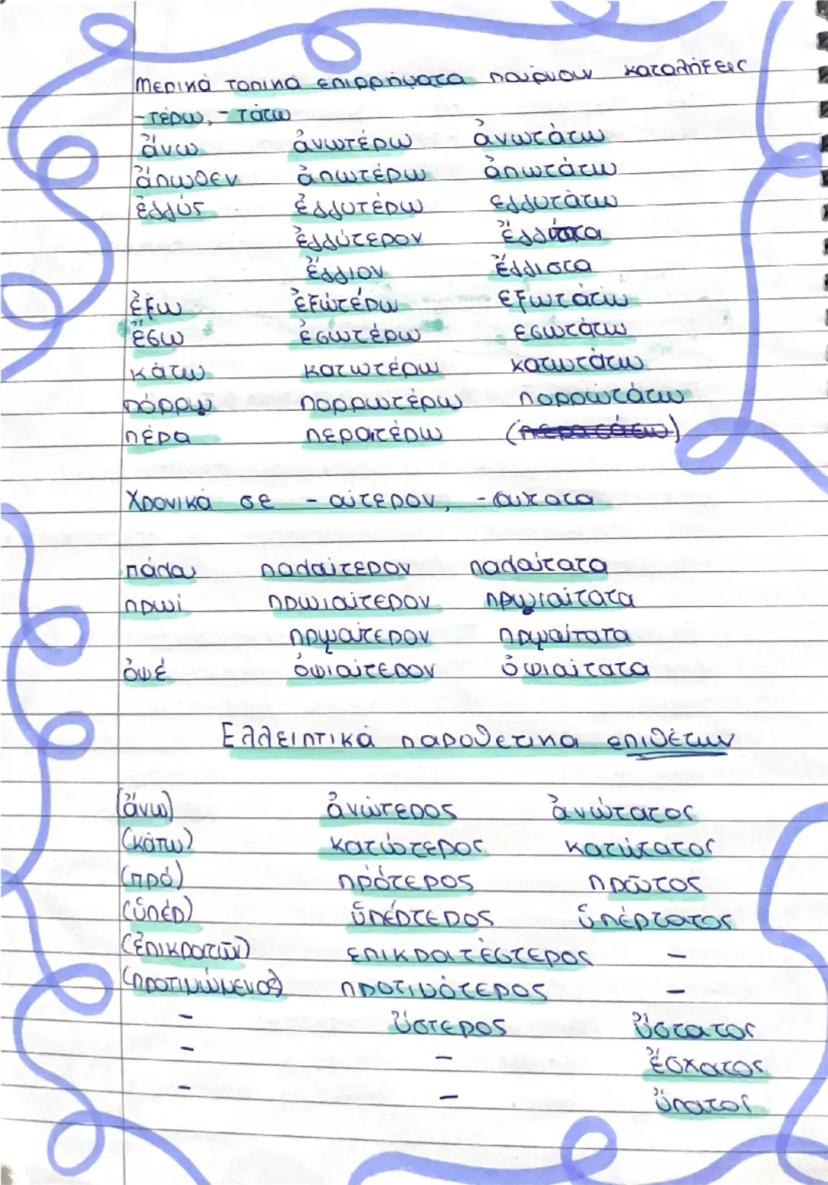 Μερικά τοπικά επιρρήματα παίρνουν καταλήξεις
-τέρω, -τάτω
ἄνω ἀνωτέρω ἀνωτάτω
ἄπωθεν ἀπωτέρω ἀπωτάτω
ἐγγύς ἐγγυτέρω ἐγγυτάτω
ἐγγύτερον
ἔγγιον ἔγγιστα
ἔξω ἐξωτέρω εξωτάτω
ἔσω ἐσωτέρω εσωτάτω
κάτω κατωτέρω κατωτάτω
πόρρω πορρωτέρω πορρωτάτω
πέρα περαιτέρω (περαιτάτω)
Χρονικά σε -αίτερον, -αίτατα
πάλαι παλαίτερον παλαίτατα
πρωί πρωιαίτερον πρωιαίτατα
πρῳαίτερον πρῳαίτατα
ὀψέ ὀψιαίτερον ὀψιαίτατα
Ελλειπτικά παραθετικά επιθέτων
(ἄνω) ἀνώτερος ἀνώτατος
(κάτω) κατώτερος κατώτατος
(πρό) πρότερος πρῶτος
(ὑπέρ) ὑπέρτερος ὑπέρτατος
(ἐπικρατῶν) επικρατέστερος -
(προτιμώμενος) προτιμότερος -
- ὕστερος ὕστατος
- - ἔσχατος
- - ὕπατος